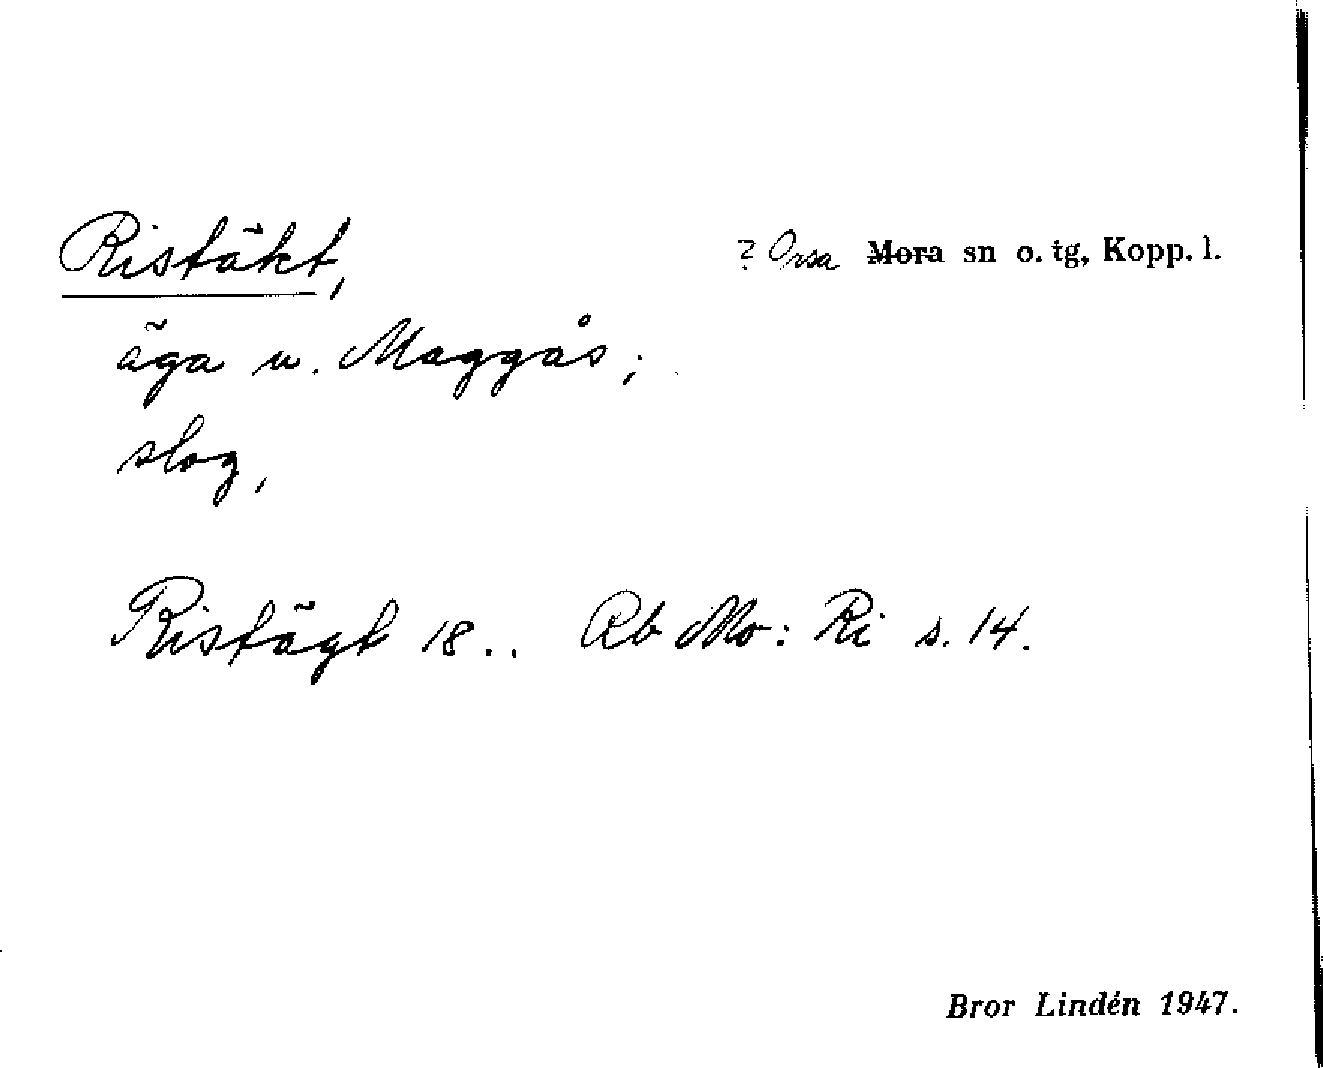 Ristäkt,
? Orsa Mora sn o. tg, Kopp. l.
äga u. Maggås;
slog,
Ristägt 18.. Rb Mo: Ri s. 14.
Bror Lindén 1947.